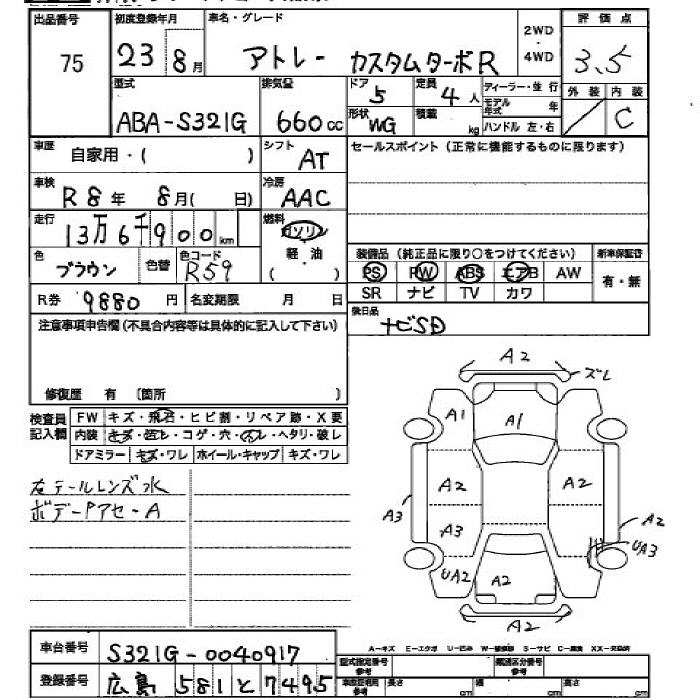 出品番号 初度登録年月 車名・グレード 2WD ・ 4WD 評価点
75 23 8月 アトレー カスタムターボR 3.5
型式 排気量 ドア 定員 ディーラー・並行 外装 内装
ABA-S321G 660cc 5 4人 モデル年式 年
形状 WG 積載 kg ハンドル 左・右 / C
車歴 自家用・( ) シフト AT セールスポイント (正常に機能するものに限ります)
車検 R8年 8月( 日) 冷房 AAC
走行 13万6千900km 燃料 ガソリン
軽・油
( )
色 ブラウン 色替 色コード R59
装備品 (純正品に限り○をつけてください) 新車保証書
PS PW ABS エアB AW 有・無
SR ナビ TV カワ
R券 9880円 名変期限 月 日
後日品 ナビSD
注意事項申告欄(不具合内容等は具体的に記入して下さい)
修復歴 有 〔箇所 〕
検査員記入欄 FW キズ・飛石・ヒビ割・リペア跡・X要
内装 キズ・スレ・コゲ・穴・ヘタリ・破レ
ドアミラー キズ・ワレ ホイール・キャップ キズ・ワレ
左テールレンズ水
ボデーアセ-A
A2
ズレ
A1
A1
A2
A2
A3
A3
A2
UA3
UA2
A2
A2
A-キズ E-エクボ U-凹み S-サビ C-腐食
車台番号 S321G-0040917
登録番号 広島 581 と 7495
型式指定番号 参考 類別区分番号 参考
長さ cm 幅 cm 高さ cm